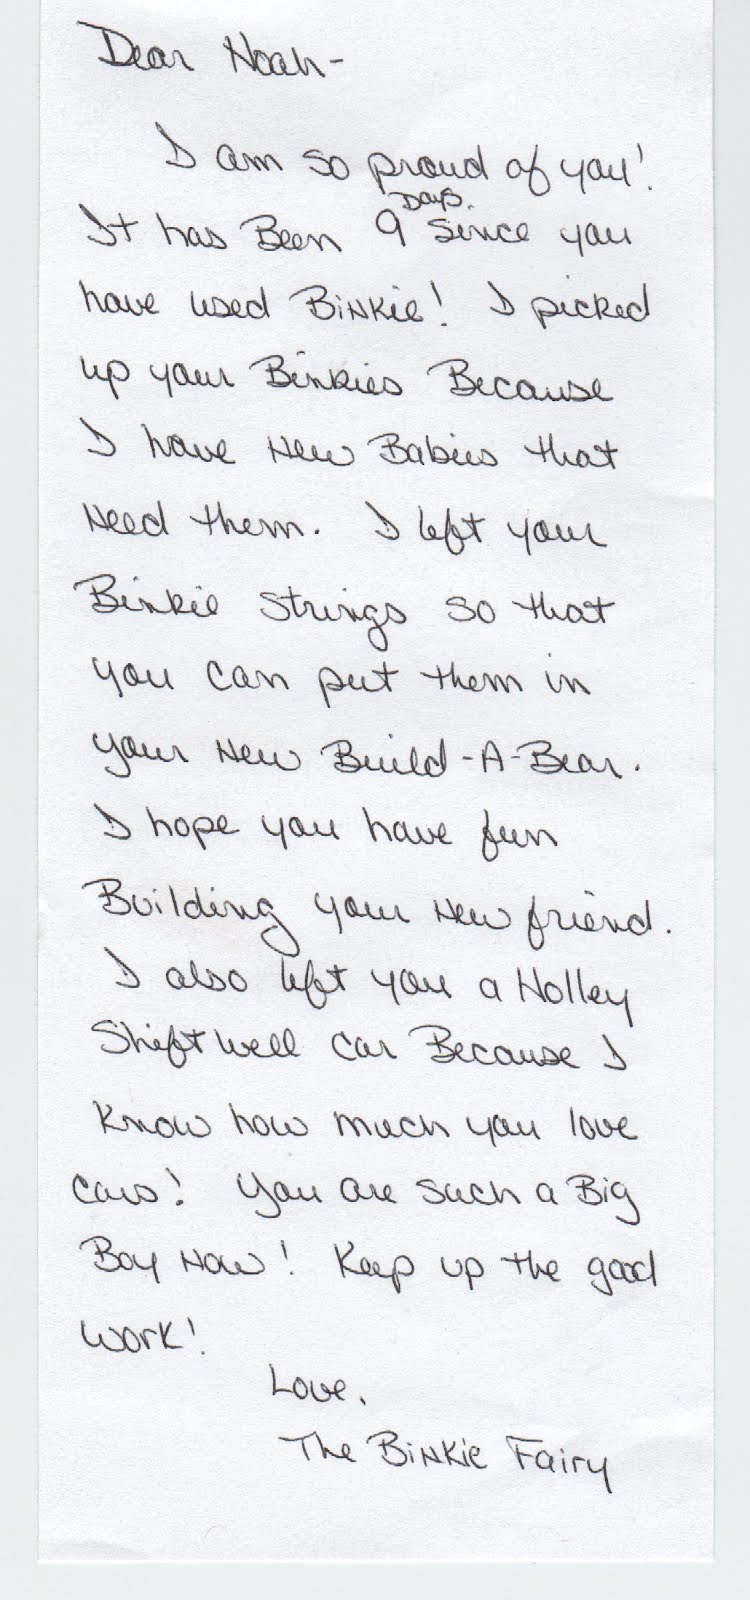 Dear Noah-
I am so proud of you!
It has Been 9 Days since you
have used Binkie! I picked
up your Binkies Because
I have New Babies that
Need them. I left your
Binkie Strings so that
you can put them in
your New Build-A-Bear.
I hope you have fun
Building your New friend.
I also left you a Holley
Shiftwell car Because I
Know how much you love
cars! You are such a Big
Boy Now! Keep up the good
work!
Love,
The Binkie Fairy